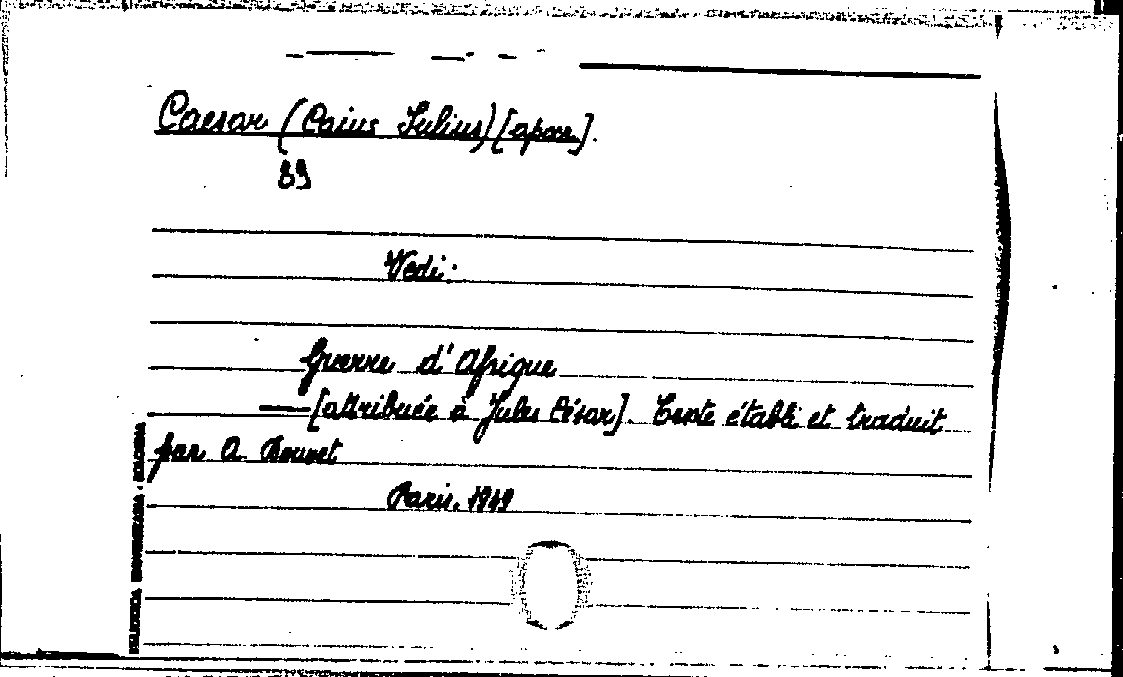 Caesar (Caius Iulius) [apocr].
89
Vedi:
Guerre d'Afrique
— [attribuée à Jules César]. Texte établi et traduit
par A. Bouvet
Paris, 1949
BIBLIOTECA UNIVERSITARIA - BOLOGNA